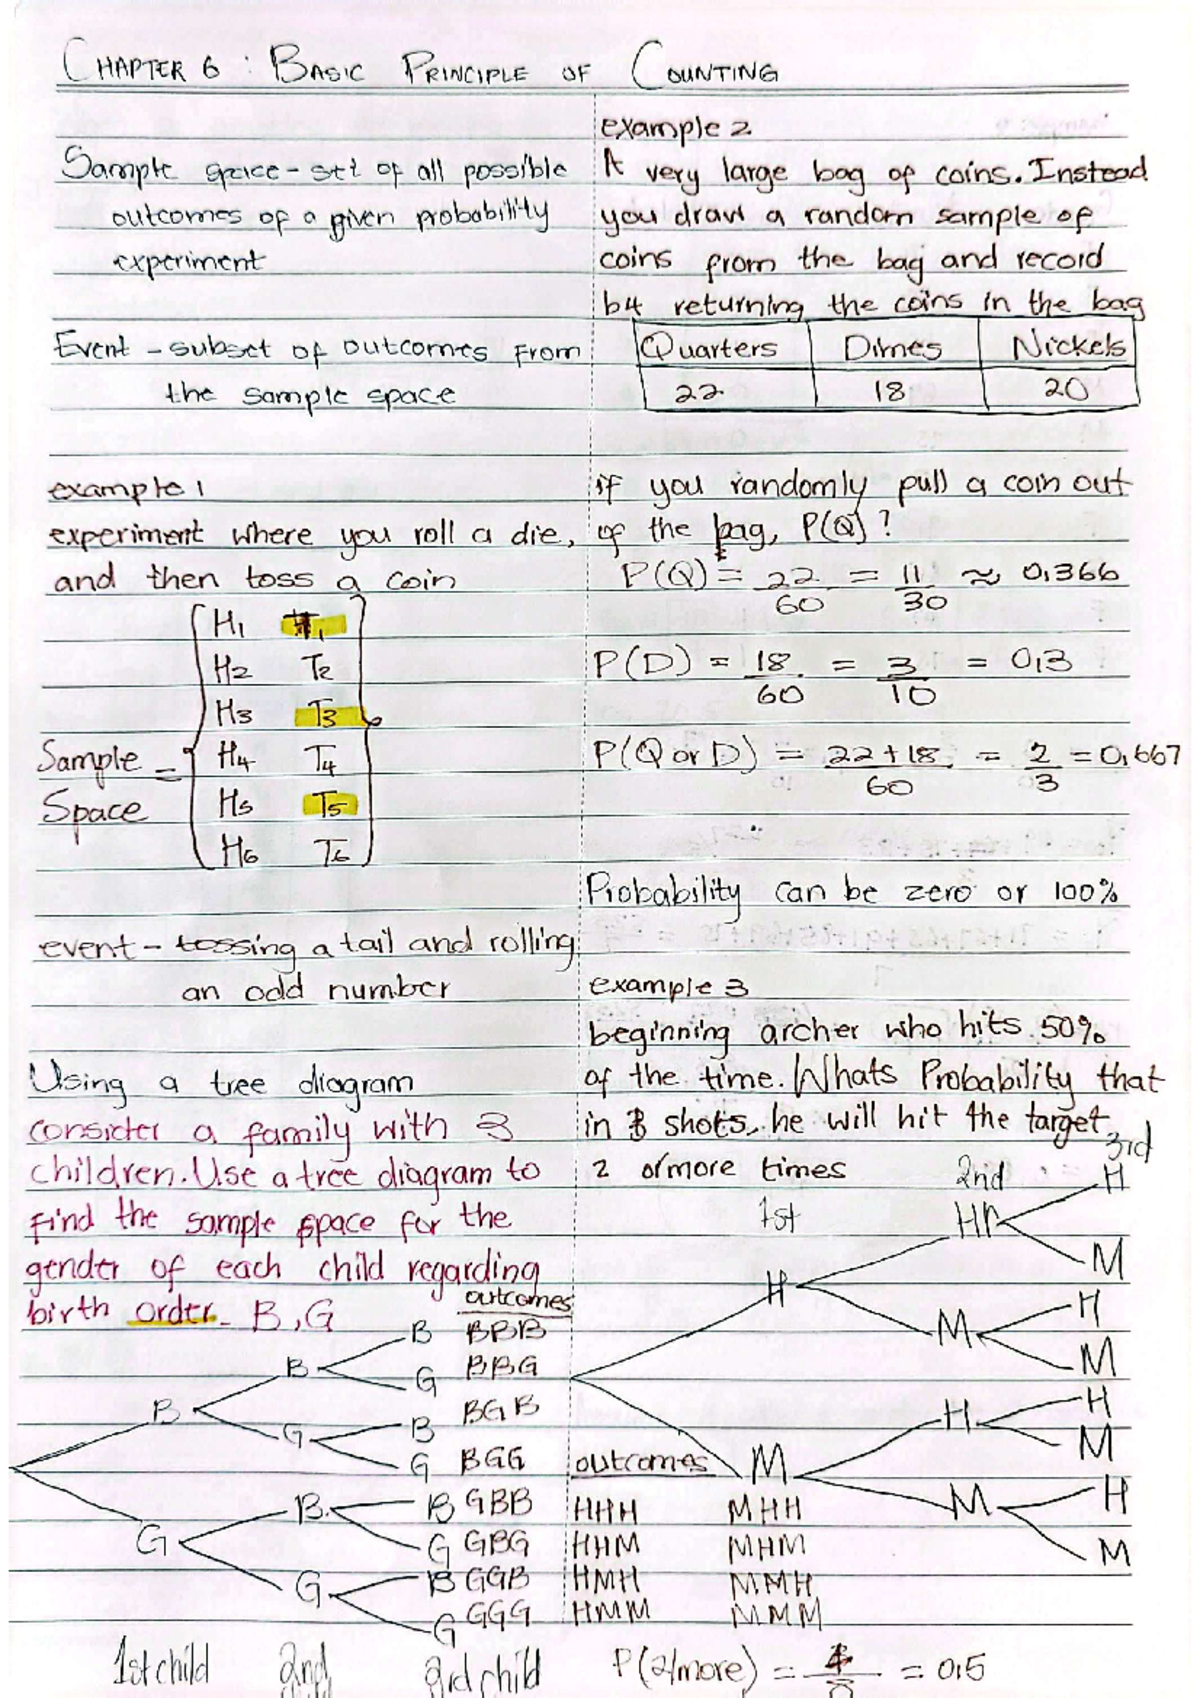 CHAPTER 6 : BASIC PRINCIPLE OF COUNTING
Sample space - set of all possible
outcomes of a given probability
experiment
Event - subset of outcomes from
the sample space
example 1
experiment where you roll a die,
and then toss a coin
H1 T1
H2 T2
H3 T3
Sample = H4 T4
Space H5 T5
H6 T6
event - tossing a tail and rolling
an odd number
Using a tree diagram
consider a family with 3
children. Use a tree diagram to
find the sample space for the
gender of each child regarding
birth order. B, G
outcomes
B BBB
B
G BBG
B
B BGB
G
G BGG
B GBB
B
G GBG
G
B GGB
G
G GGG
1st child 2nd child 3rd child
example 2
A very large bag of coins. Instead
you draw a random sample of
coins from the bag and record
b4 returning the coins in the bag
Quarters Dimes Nickels
22 18 20
if you randomly pull a coin out
of the bag, P(Q)?
P(Q) = 22/60 = 11/30 ≈ 0,366
P(D) = 18/60 = 3/10 = 0,3
P(Q or D) = 22+18/60 = 2/3 = 0,667
Probability can be zero or 100%
example 3
beginning archer who hits 50%
of the time. Whats Probability that
in 3 shots, he will hit the target
2 or more times
1st 2nd 3rd
H
H
M
H
H
M
M
H
H
M
M
H
M
M
outcomes
HHH MHH
HHM MHM
HMH MMH
HMM MMM
P(2/more) = 4/8 = 0,5